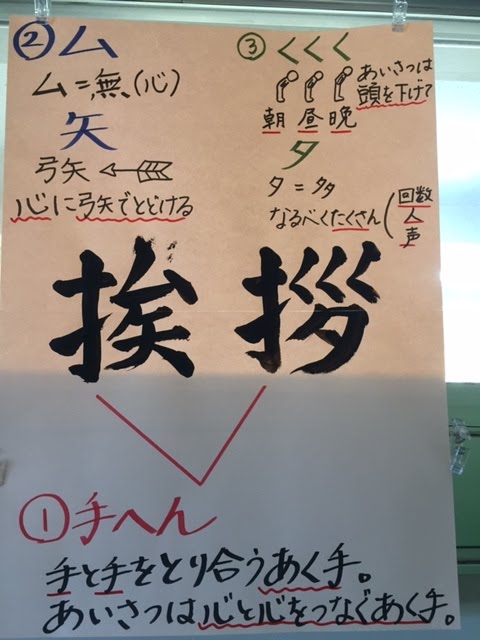 ②ム
ム=無(心)
矢
弓矢
心に弓矢でとどける
③くくく
あいさつは
頭を下げて
朝 昼 晩
タ
タ=多
なるべくたくさん(回数
人
声
挨拶
①手へん
手と手をとり合うあく手。
あいさつは心と心をつなぐあく手。